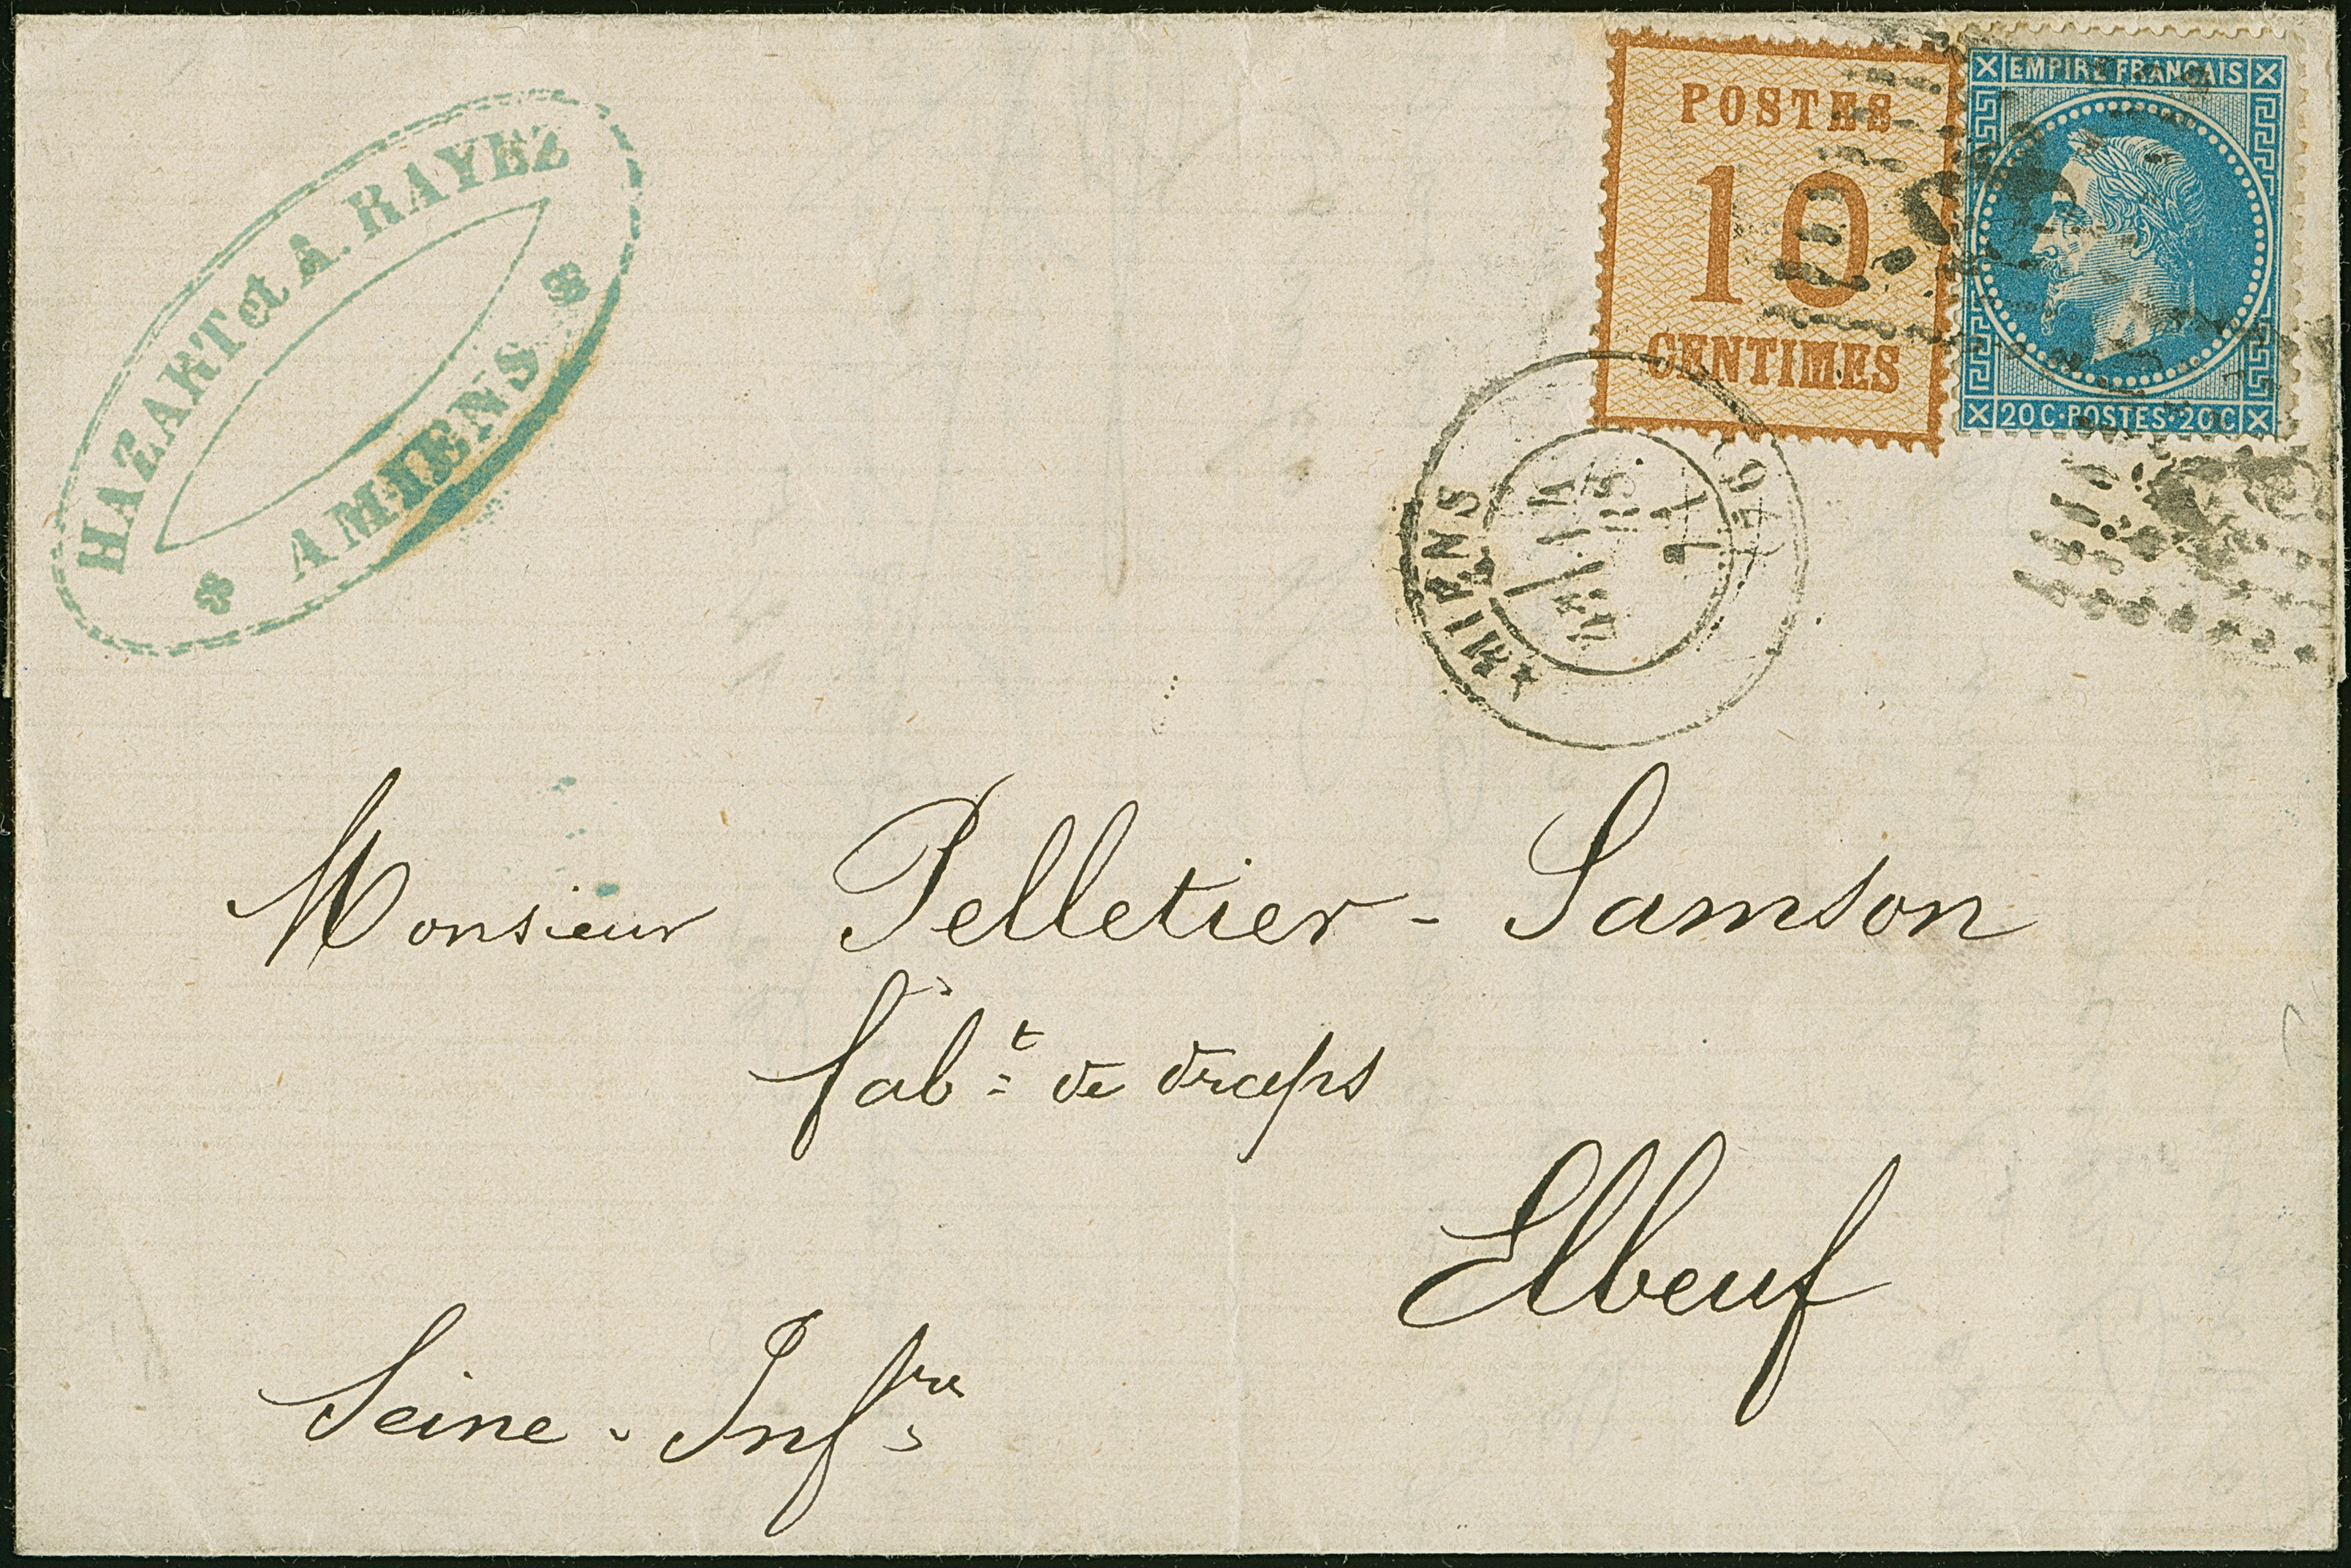 HAZART et A. RAYEZ
AMIENS
POSTES
10
CENTIMES
EMPIRE FRANÇAIS
20C·POSTES·20C
AMIENS
MARS
71
76
Monsieur Pelletier - Samson
fabt de draps
Elbeuf
Seine - Infre